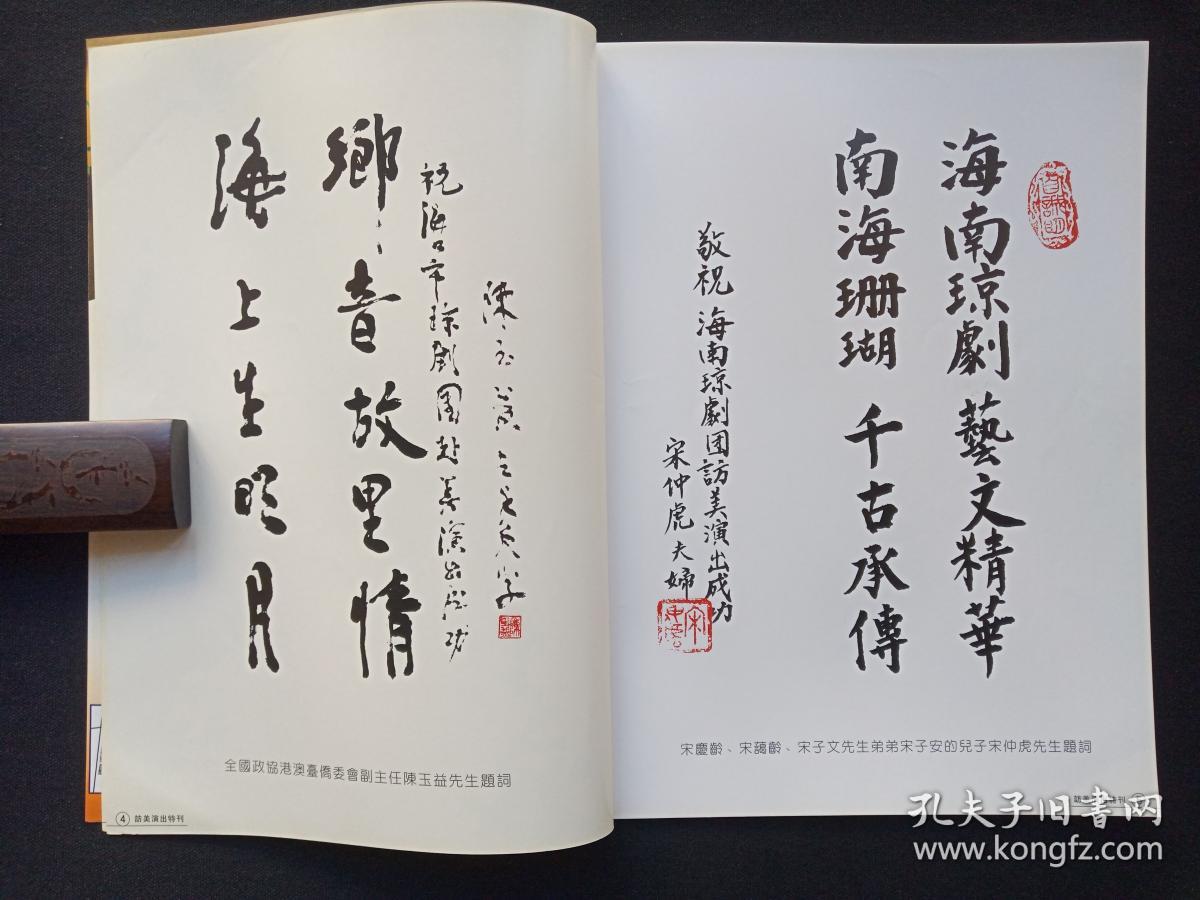 海上生明月
鄉音故里情
祝海口市琼剧團赴美演出成功
陳玉益
全國政協港澳臺僑委會副主任陳玉益先生題詞
4 訪美演出特刊
海南琼劇藝文精華
南海珊瑚千古承傳
敬祝海南琼劇团訪美演出成功
宋仲虎夫婦
宋慶齡、宋藹齡、宋子文先生弟弟宋子安的兒子宋仲虎先生題詞
訪美演出特刊
孔夫子旧书网
www.kongfz.com